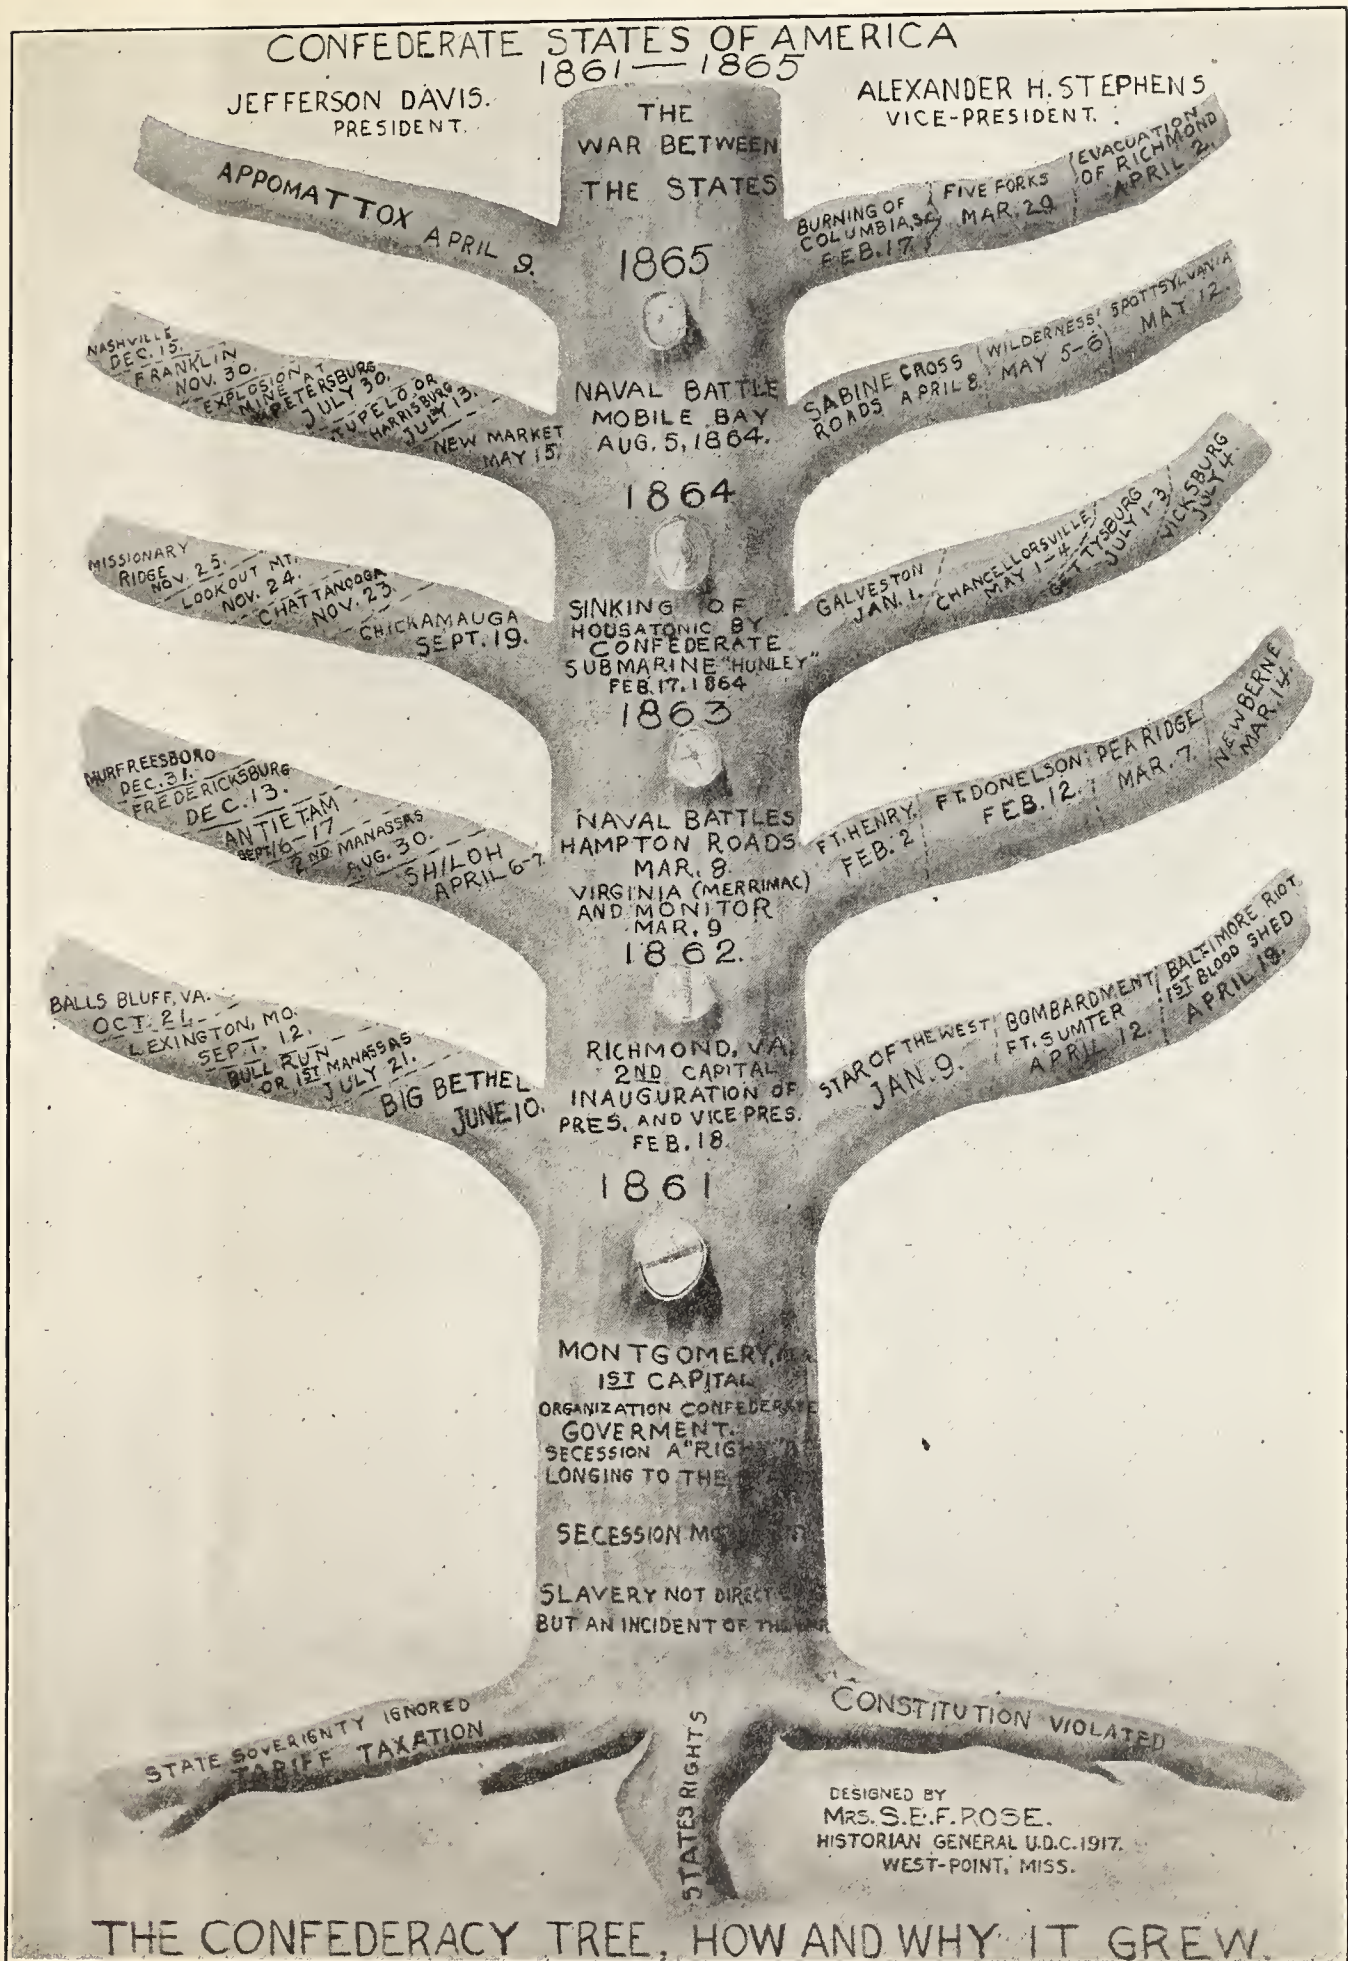 CONFEDERATE STATES OF AMERICA
1861 — 1865
JEFFERSON DAVIS.
PRESIDENT.
ALEXANDER H. STEPHENS
VICE-PRESIDENT.
THE
WAR BETWEEN
THE STATES
APPOMATTOX APRIL 9.
BURNING OF
COLUMBIA, S.C.
FEB. 17.
FIVE FORKS
MAR. 29
EVACUATION
OF RICHMOND
APRIL 2.
1865
NASHVILLE
DEC. 15.
FRANKLIN
NOV. 30.
EXPLOSION AT
MINE
PETERSBURG
JULY 30.
TUPELO OR
HARRISBURG
JULY 13.
NEW MARKET
MAY 15.
NAVAL BATTLE
MOBILE BAY
AUG. 5, 1864.
SABINE CROSS
ROADS APRIL 8.
WILDERNESS
MAY 5-6
SPOTTSYLVANIA
MAY 12.
1864
MISSIONARY
RIDGE
NOV. 25.
LOOKOUT MT.
NOV. 24.
CHATTANOOGA
NOV. 23.
CHICKAMAUGA
SEPT. 19.
SINKING OF
HOUSATONIC BY
CONFEDERATE
SUBMARINE "HUNLEY"
FEB. 17. 1864
GALVESTON
JAN. 1.
CHANCELLORSVILLE
MAY 1-4
GETTYSBURG
JULY 1-3
VICKSBURG
JULY 4.
1863
MURFREESBORO
DEC. 31.
FREDERICKSBURG
DEC. 13.
ANTIETAM
SEPT. 16-17
2ND MANASSAS
AUG. 30.
SHILOH
APRIL 6-7
NAVAL BATTLES
HAMPTON ROADS
MAR. 8.
VIRGINIA (MERRIMAC)
AND MONITOR
MAR. 9
FT. HENRY.
FEB. 2
FT. DONELSON
FEB. 12.
PEA RIDGE
MAR. 7.
NEW BERNE
MAR. 14.
1862.
BALLS BLUFF, VA.
OCT. 21.
LEXINGTON, MO.
SEPT. 12.
BULL RUN
OR 1ST MANASSAS
JULY 21.
BIG BETHEL
JUNE 10.
RICHMOND, VA.
2ND CAPITAL
INAUGURATION OF
PRES. AND VICE PRES.
FEB. 18.
STAR OF THE WEST
JAN. 9.
BOMBARDMENT
FT. SUMTER
APRIL 12.
BALTIMORE RIOT
1ST BLOOD SHED
APRIL 19.
1861
MONTGOMERY,
1ST CAPITAL
ORGANIZATION CONFEDERATE
GOVERMENT.
SECESSION A "RIGHT"
LONGING TO THE
SECESSION
SLAVERY NOT DIRECT
BUT AN INCIDENT OF THE WAR
STATE SOVERIGNTY IGNORED
TARIFF TAXATION
STATES RIGHTS
CONSTITUTION VIOLATED
DESIGNED BY
MRS. S.E.F. ROSE.
HISTORIAN GENERAL U.D.C. 1917.
WEST-POINT, MISS.
THE CONFEDERACY TREE, HOW AND WHY IT GREW.